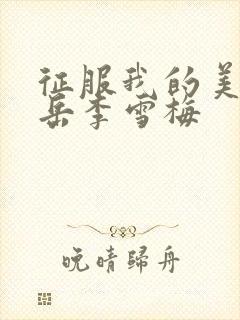 征服我的美
岳李雪梅
晚晴归舟